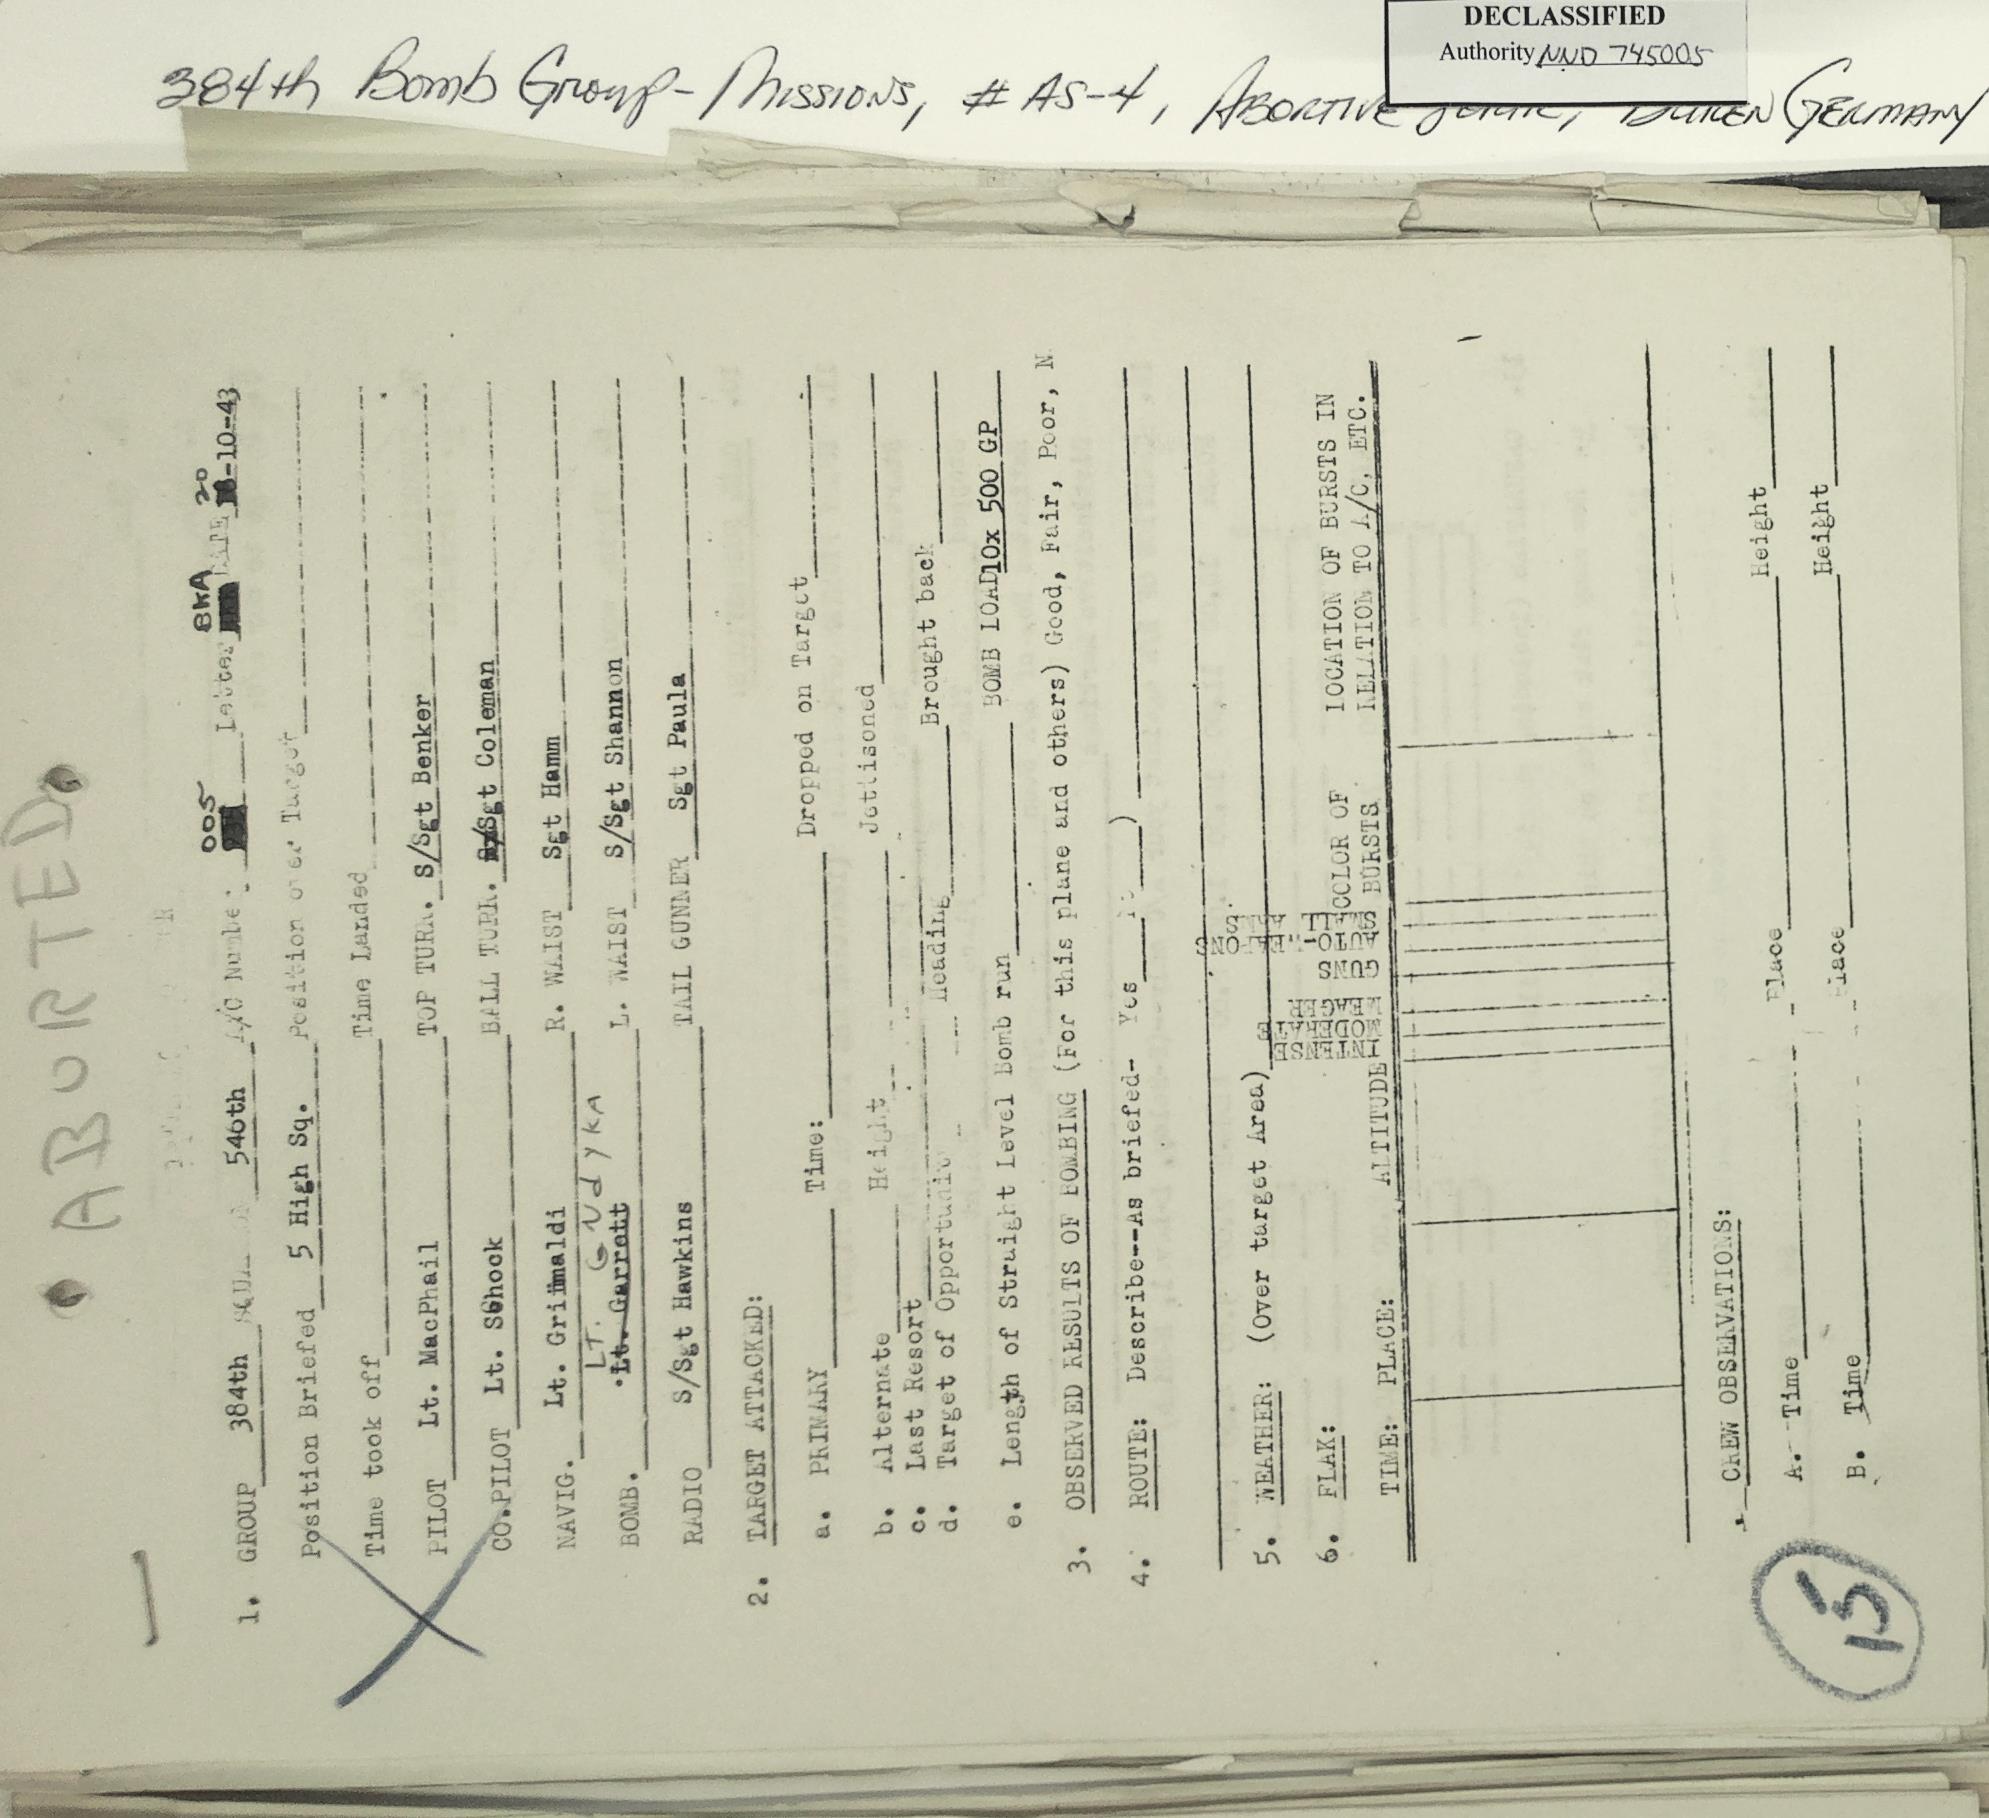 DECLASSIFIED
Authority NND 745005
384th Bomb Group - Missions, # AS-4, ABORTIVE GERMANY
ABORTED
1. GROUP 384th 546th A/C Number: 005 Letter BKA DATE 20-10-43
Position Briefed 5 High Sq. Position over Target
Time took off Time Landed
PILOT Lt. MacPhail TOP TURR. S/Sgt Benker
CO.PILOT Lt. Schock BALL TURR. S/Sgt Coleman
NAVIG. Lt. Grimaldi R. WAIST Sgt Hamm
LT. GUdyKA
BOMB. Lt. Garrett L. WAIST S/Sgt Shannon
RADIO S/Sgt Hawkins TAIL GUNNER Sgt Paula
2. TARGET ATTACKED:
a. PRIMARY Time: Dropped on Target
b. Alternate Height Jettisoned
c. Last Resort Heading Brought back
d. Target of Opportunity
e. Length of Straight Level Bomb run BOMB LOAD 10x 500 GP
3. OBSERVED RESULTS OF BOMBING (For this plane and others) Good, Fair, Poor, N
4. ROUTE: Describe--As briefed- Yes )
5. WEATHER: (Over target Area)
6. FLAK:
TIME: PLACE: ALTITUDE INTENSE MODERATE MEAGER GUNS AUTO-WEAPONS SMALL ARMS COLOR OF BURSTS LOCATION OF BURSTS IN RELATION TO A/C, ETC.
CREW OBSERVATIONS:
A. Time Place Height
B. Time Place Height
15